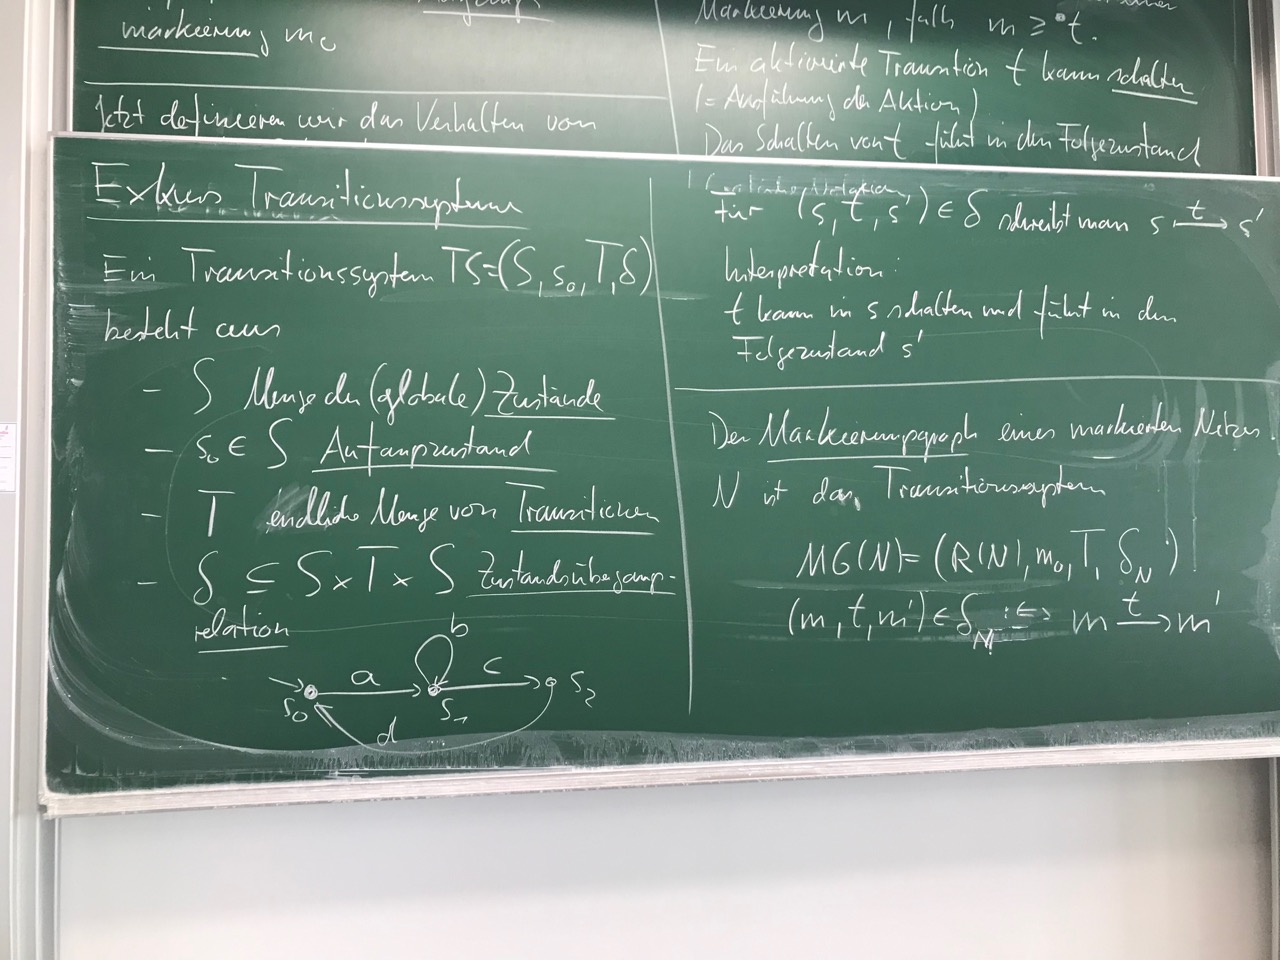 markierung m₀
Jetzt definieren wir das Verhalten von
Markierung m, falls m ≥ •t.
Ein aktivierte Transition t kann schalten
(= Ausführung der Aktion)
Das Schalten von t führt in den Folgezustand
Exkurs Transitionssysteme
Ein Transitionssystem TS=(S, s₀, T, δ)
besteht aus
- S Menge der (globale) Zustände
- s₀ ∈ S Anfangszustand
- T endliche Menge von Transitionen
- δ ⊆ S × T × S Zustandsübergangs-
relation
b
a
c
s₀
s₁
s₂
d
für (s, t, s') ∈ δ schreibt man s –t→ s'
Interpretation:
t kann in s schalten und führt in den
Folgezustand s'
Der Markierungsgraph eines markierten Netzes
N ist das Transitionssystem
MG(N) = (R(N), m₀, T, δ_N)
(m, t, m') ∈ δ_N :⇔ m –t→ m'